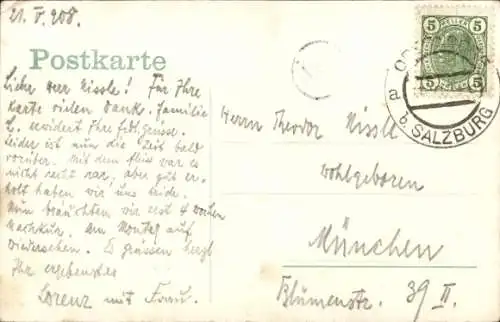 21. V. 908.
Postkarte
Lieber Herr Nissle! Für Ihre
Karte vielen Dank. Familie
L. erwidert Ihre frdl. Grüsse.
Leider ist nun die Zeit bald
vorüber. Mit dem war es
nicht recht rar, aber gut er-
holt haben wir uns beide.
Nun bräuchten wir erst 4 Wochen
Nachkur. Am Montag auf
Wiedersehen. Es grüssen herzl.
Ihr ergebenster
Lorenz mit Frau.
5 HELLER 5
5 5
b. SALZBURG
Herrn Theodor Nissle
Wohlgeboren
München
Blumenstr. 39 II.